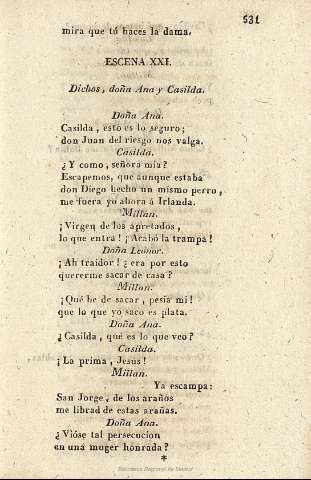 531
mira que tú haces la dama.
ESCENA XXI.
Dichos, doña Ana y Casilda.
Doña Ana.
Casilda, esto es lo seguro;
don Juan del riesgo nos valga.
Casilda.
¿Y como, señora mia?
Escapemos, que aunque estaba
don Diego hecho un mismo perro,
me fuera yo ahora á Irlanda.
Millan.
¡Virgen de los apretados,
lo que entra! ¡Acabó la trampa!
Doña Leonor.
¡Ah traidor! ¿era por esto
quererme sacar de casa?
Millan.
¡Qué he de sacar, pesia mi!
que lo que yo saco es plata.
Doña Ana.
¿Casilda, qué es lo que veo?
Casilda.
¡La prima, Jesus!
Millan.
Ya escampa:
San Jorge, de los araños
me librad de estas arañas.
Doña Ana.
¿Vióse tal persecucion
en una muger honrada?
*
Biblioteca Regional de Madrid